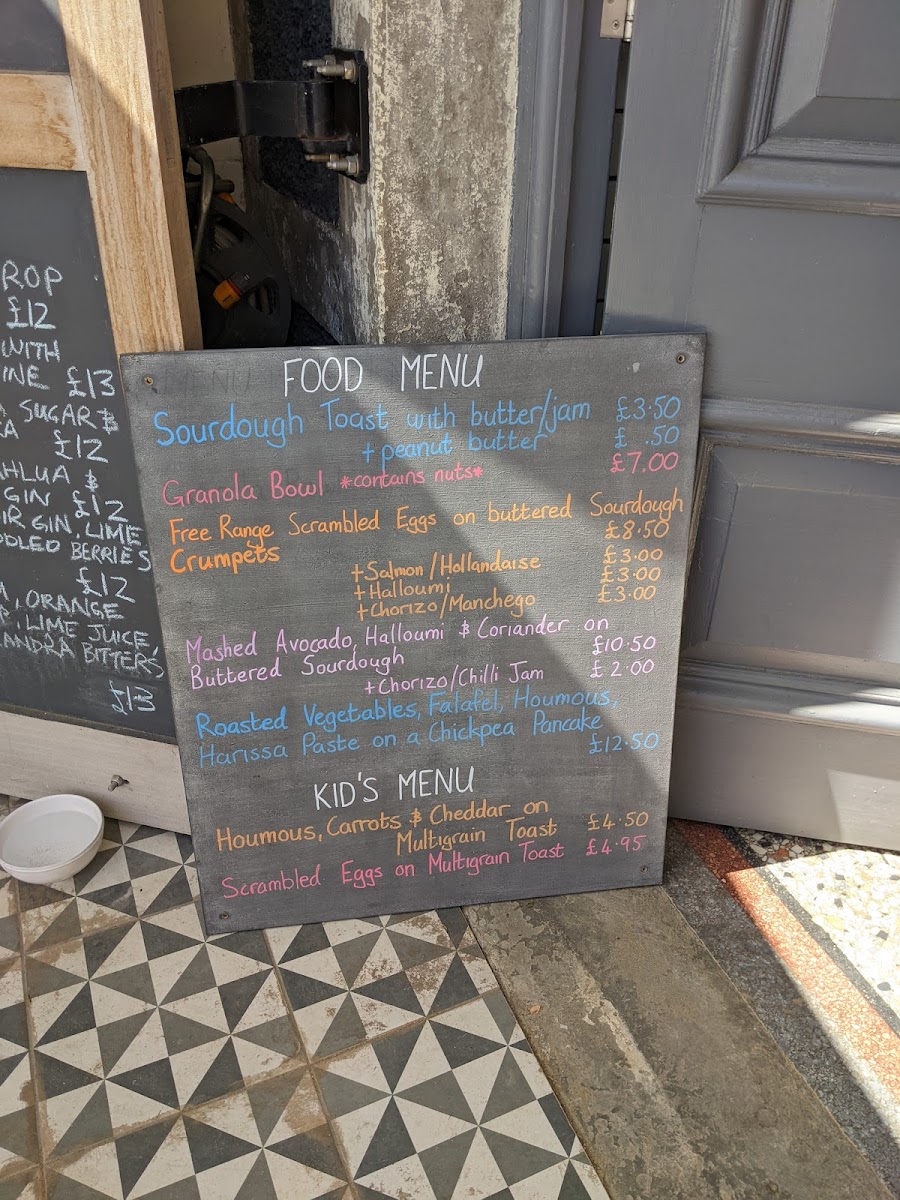 ROP
£12
WITH
INE £13
SUGAR &
£12
AHLUA &
GIN £12
GIN, LIME
DDLED BERRIES
£12
, ORANGE
, LIME JUICE,
ANDRA BITTERS
£13
MENU
FOOD MENU
Sourdough Toast with butter/jam £3.50
+ peanut butter £ .50
Granola Bowl *contains nuts* £7.00
Free Range Scrambled Eggs on buttered Sourdough
Crumpets £8.50
+Salmon/Hollandaise £3.00
+Halloumi £3.00
+Chorizo/Manchego £3.00
Mashed Avocado, Halloumi & Coriander on
Buttered Sourdough £10.50
+Chorizo/Chilli Jam £2.00
Roasted Vegetables, Falafel, Houmous,
Harissa Paste on a Chickpea Pancake
£12.50
KID'S MENU
Houmous, Carrots & Cheddar on
Multigrain Toast £4.50
Scrambled Eggs on Multigrain Toast £4.95